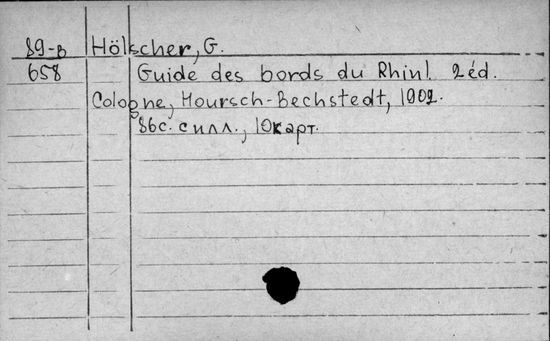 89-в Hölscher, G.
658 Guide des bords du Rhin. 2 éd.
Cologne, Hoursch-Bechstedt, 1902.
86с. с илл., 10карт.